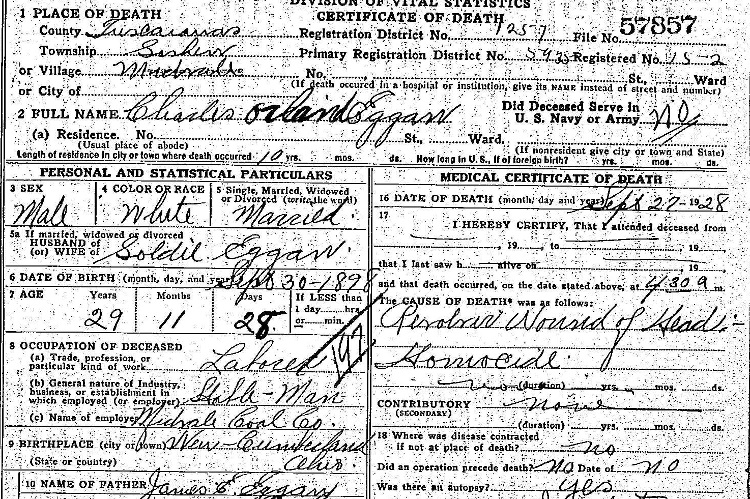 DIVISION OF VITAL STATISTICS
CERTIFICATE OF DEATH
1 PLACE OF DEATH
County Tuscarawas
Registration District No. 1257 File No. 57857
Township
Primary Registration District No. Registered No. 15-2
or Village No. St., Ward
(If death occurred in a hospital or institution, give its NAME instead of street and number)
or City of
2 FULL NAME Charles Orland Eggan
Did Deceased Serve in
U. S. Navy or Army. No
(a) Residence. No. St., Ward.
(Usual place of abode)
(If nonresident give city or town and State)
Length of residence in city or town where death occurred 10 yrs. mos. ds. How long in U. S., if of foreign birth? yrs. mos. ds.
PERSONAL AND STATISTICAL PARTICULARS
3 SEX
Male
4 COLOR OR RACE
White
5 Single, Married, Widowed
or Divorced (write the word)
Married.
5a If married, widowed or divorced
HUSBAND of
(or) WIFE of Goldie Eggan.
6 DATE OF BIRTH (month, day, and year) Sept 30-1898
7 AGE Years Months Days If LESS than
1 day......hrs.
or......min.
29 11 28.
8 OCCUPATION OF DECEASED
(a) Trade, profession, or
particular kind of work Laborer
(b) General nature of Industry,
business, or establishment in
which employed (or employer) Stable-Man
(c) Name of employer Midvale Coal Co.
9 BIRTHPLACE (city or town) New-Cumberland
(State or country) Ohio.
10 NAME OF FATHER James E. Eggan
MEDICAL CERTIFICATE OF DEATH
16 DATE OF DEATH (month, day and year) Sept 27-1928
17
I HEREBY CERTIFY, That I attended deceased from
, 19 , to , 19
that I last saw h alive on , 19
and that death occurred, on the date stated above, at 4/30 a m.
The CAUSE OF DEATH* was as follows:
Revolver Wound of Head:-
Homocide.
(duration) yrs. mos. ds.
CONTRIBUTORY none
(SECONDARY)
(duration) yrs. mos. ds.
18 Where was disease contracted
if not at place of death? no
Did an operation precede death? No Date of No
Was there an autopsy? Yes